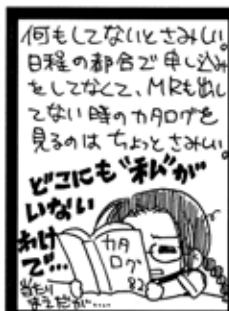 何もしてないとさみしい。
日程の都合で申し込み
をしてなくて、MRも出し
てない時のカタログを
見るのはちょっとさみしい。
どこにも“私”が
いない
わけ
で…
カタ
ログ
82
当たり
まえだが……